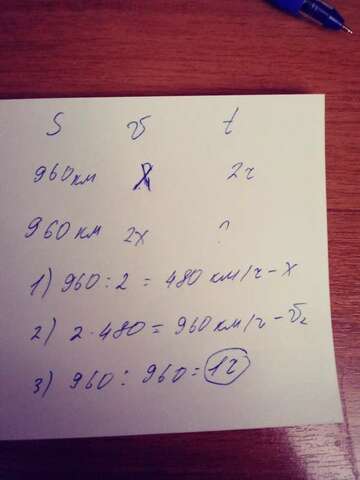 S v t
960км x 2ч
960 км 2x ?
1) 960 : 2 = 480 км/ч - x
2) 2 · 480 = 960 км/ч - v₂
3) 960 : 960 = 1ч